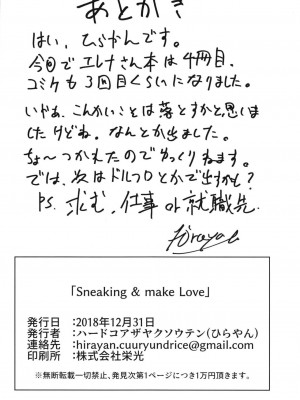 あとがき
はい、ひらやんです。
今回でエレナさん本は4冊目、
コミケも3回目くらいになりました。
いやぁ、こんかいことは落とすかと思いま
したけどね。なんとか出ました。
ちょ〜つかれたのでゆっくりねます。
では、次はドルフロとかで出すかも?
P.S. 求む、仕事 or 就職先.
Hirayan
「Sneaking & make Love」
発行日 ：2018年12月31日
発行者 ：ハードコアアザヤクソウテン(ひらやん)
連絡先 ：hirayan.cuuryundrice@gmail.com
印刷所 ：株式会社栄光
※無断転載一切禁止、発見次第1ページにつき1万円頂きます。